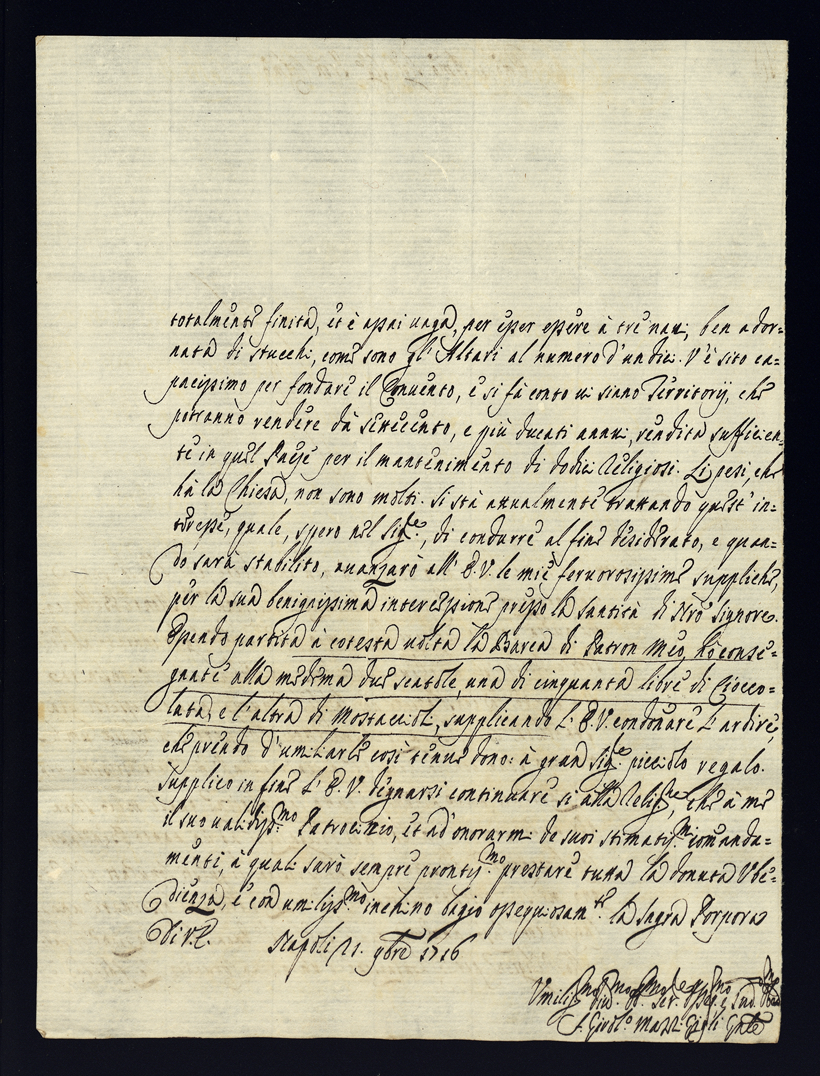 totalmente finita, et è assai vaga, per esser essere à trè navi, ben ador=
nata di stucchi, come sono gl'Altari al numero d'undici. V'è sito ca=
pacissimo per fondare il Convento, e si fà conto vi siano Territorij, che
potranno vendere dà settecento, e più ducati annui, rendita sufficien=
te in quel Paese per il mantenimento di dodici Religiosi. Li pesi, che
hà la Chiesa, non sono molti. Si stà attualmente trattando quest'in=
teresse, quale, spero nel Sig.re, di condurre al fine desiderato, e quan=
do sarà stabilito, avanzarò all'E.V. le mie fervorosissime suppliche,
per la sua benignissima intercessione presso la santità di Nrõ Signore.
Essendo partita à cotesta volta la Barca di Patron Meo, hò conse=
gnate alla medema due scatole, una di cinquanta libre di Ciocco=
lata, e l'altra di Mostaccioli, supplicando l'E.V. condonare l'ardire,
che prendo d'umiliarle così tenue dono: à gran Sig.re piccolo regalo.
Supplico in fine l'E.V. degnarsi continuare sì alla Relig.ne, che à me
il suo validiss.mo Patrocinio, et ad'onorarmi de suoi stimatiss.mi comanda=
menti, à quali sarò sempre prontiss.mo prestare tutta la dovuta Vbe=
dienza, e con umiliss.mo inchino bagio ossequiosam.te la Sagra Porpora
Di V.E. Napoli 21. 9bre 1716
Vmiliss.mo Div.mo Ser.
F. Girol.o Gnãle